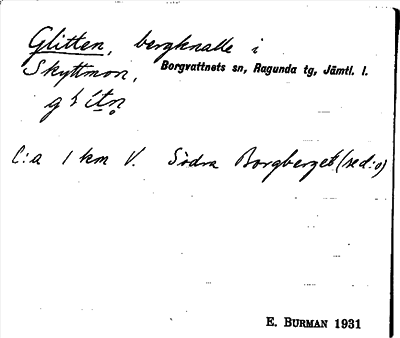 Glitten, bergknalle i
Skyttmon, Borgvattnets sn, Ragunda tg, Jämtl. l.
C:a 1 km V. Södra Borgberget (se d:o)
E. BURMAN 1931